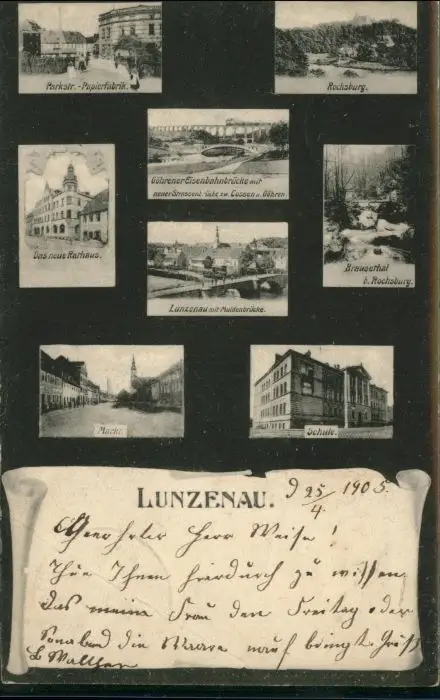 Parkstr. - Papierfabrik.
Rochsburg.
Göhrener Eisenbahnbrücke mit
neuer Strassenbrücke zw. Cossen u. Göhren
Das neue Rathaus.
Brauserthal
b. Rochsburg.
Lunzenau mit Muldenbrücke.
Markt.
Schule.
LUNZENAU.
d 25/4. 1905.
Geehrter Herr Weise!
Thue Ihnen hierdurch zu wissen
das meine Frau den Freitag oder
Sonabend die Waare nauf bringt. Gruß